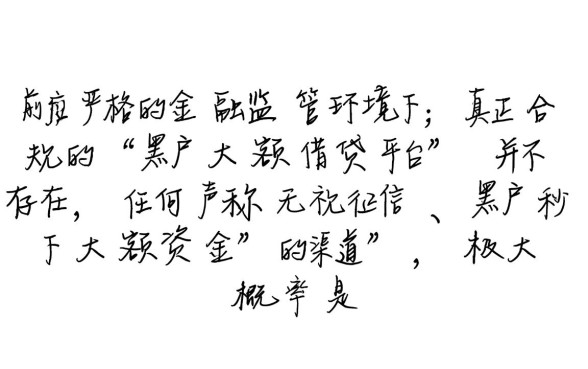 前度严格的金融监管环境下；真正合
规的“黑户大额借贷平台” 并不
存在， 任何声称无视征信、黑户秒
下大额资金”的渠道”，极大
概率是